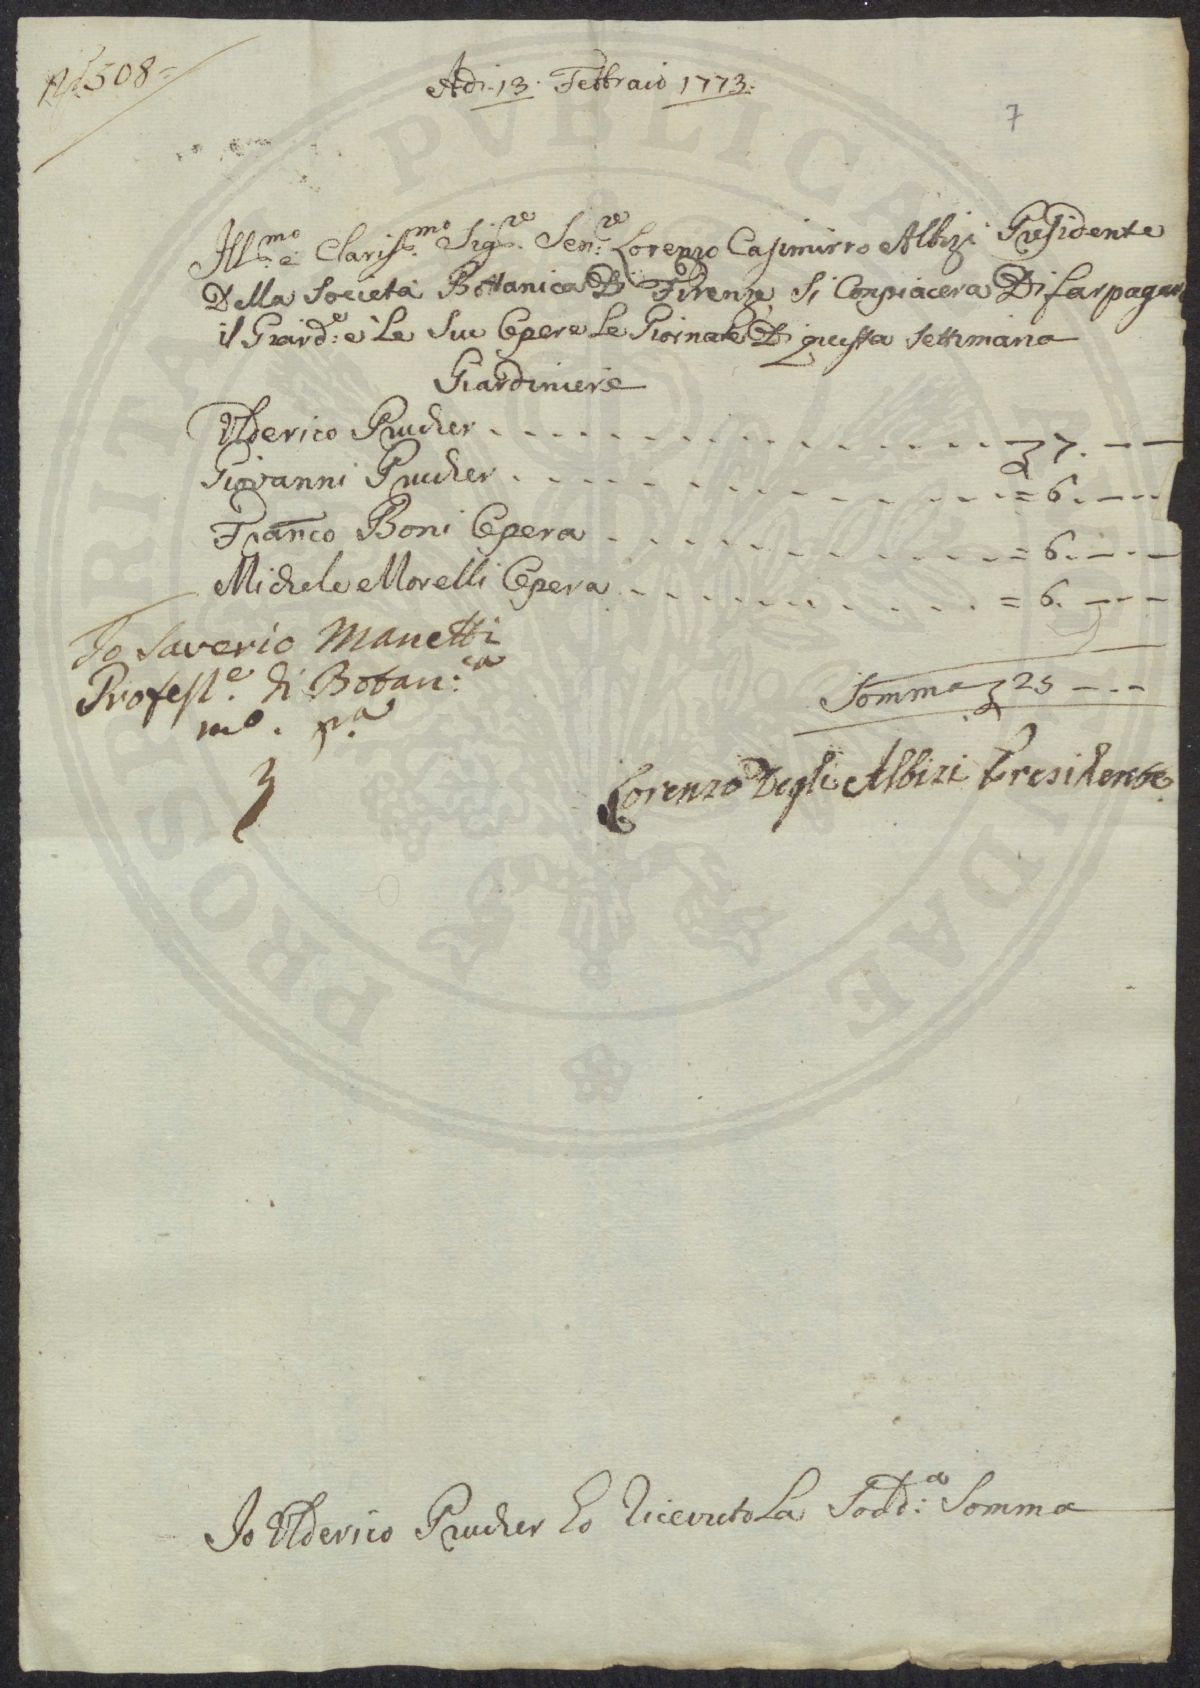 508=
Adi 13. Febbraio 1773.
7
Ill:mo e Clariss:mo Sig:re Sen:re Lorenzo Casimirro Albizi Presidente
Della Societa Bottanica Di Firenze Si Conpiacera Di far pagar
il Giard:e e Le Sue Opere Le Giornate Di questa Settimana
Giardiniere
Ulderico Prucher - - - - - - - - - - 7. - -
Giovanni Prucher - - - - - - - - - - = 6. - - -
Franco Boni Opera - - - - - - - - - - = 6. - - -
Michele Morelli Opera - - - - - - - - - - = 6. - - -
Io Saverio Manetti
Profess:e di Botan:ca
mo. pa
Somma 25 - - -
Lorenzo Degli Albizi Presidente
Io Ulderico Prucher Ho Riceuto La Sodd:a Somma
PROSPERITATI PVBLICAE